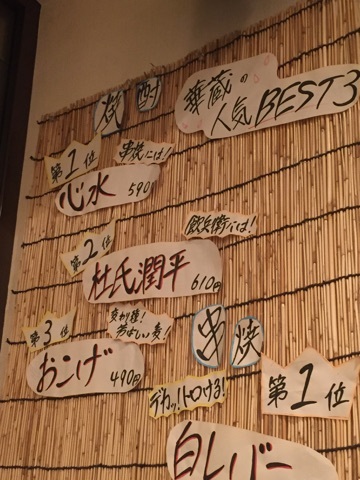 華蔵の
人気BEST3
焼酎
第1位
串焼には!
心水 590
第2位
飲兵衛には!
杜氏潤平 610円
第3位
変わり種!
芳ばしい麦!
おこげ 490円
串焼
第1位
デカッ!トロける!
白レバー